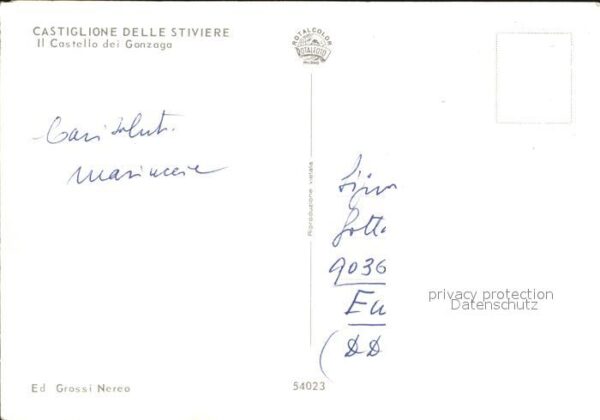 CASTIGLIONE DELLE STIVIERE
Il Castello dei Gonzaga
ROTALCOLOR
ROTALFOTO
MILANO
Cari saluti
Mariuccia
Riproduzione vietata
9036
privacy protection
Datenschutz
Ed Grossi Nereo
54023